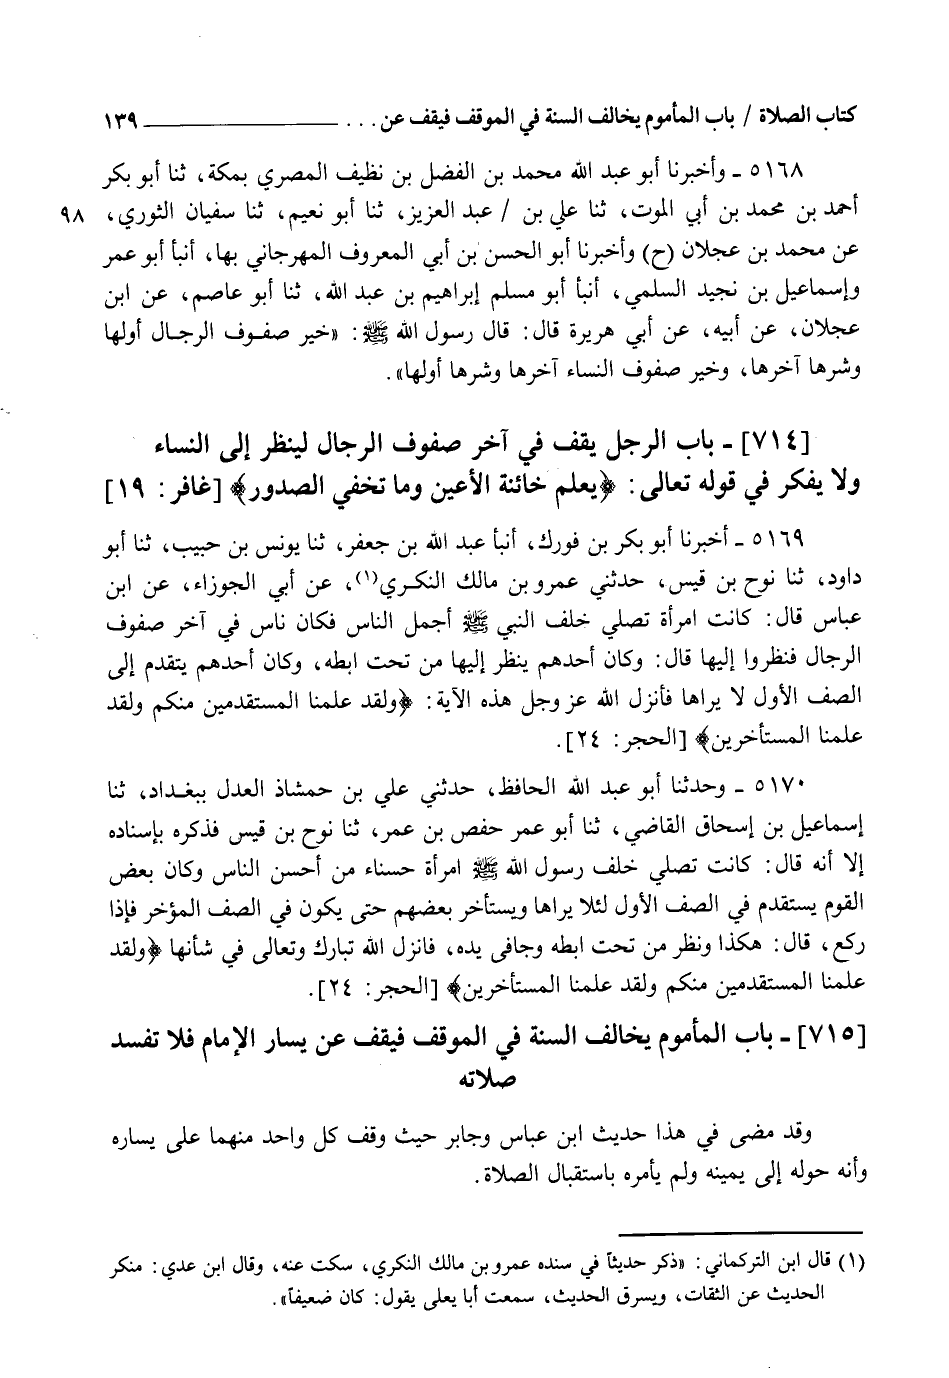 كتاب الصلاة / باب المأموم يخالف السنة في الموقف فيقف عن . . . ١٣٩
٥١٦٨ ـ وأخبرنا أبو عبد الله محمد بن الفضل بن نظيف المصري بمكة، ثنا أبو بكر
أحمد بن محمد بن أبي الموت، ثنا علي بن / عبد العزيز، ثنا أبو نعيم، ثنا سفيان الثوري، ٩٨
عن محمد بن عجلان (ح) وأخبرنا أبو الحسن بن أبي المعروف المهرجاني بها، أنبأ أبو عمر
وإسماعيل بن نجيد السلمي، أنبأ أبو مسلم إبراهيم بن عبد الله، ثنا أبو عاصم، عن ابن
عجلان، عن أبيه، عن أبي هريرة قال: قال رسول الله ﷺ: «خير صفوف الرجال أولها
وشرها آخرها، وخير صفوف النساء آخرها وشرها أولها».
[٧١٤] ـ باب الرجل يقف في آخر صفوف الرجال لينظر إلى النساء
ولا يفكر في قوله تعالى: ﴿يعلم خائنة الأعين وما تخفي الصدور﴾ [غافر: ١٩]
٥١٦٩ ـ أخبرنا أبو بكر بن فورك، أنبأ عبد الله بن جعفر، ثنا يونس بن حبيب، ثنا أبو
داود، ثنا نوح بن قيس، حدثني عمرو بن مالك النكري(١)، عن أبي الجوزاء، عن ابن
عباس قال: كانت امرأة تصلي خلف النبي ﷺ أجمل الناس فكان ناس في آخر صفوف
الرجال فنظروا إليها قال: وكان أحدهم ينظر إليها من تحت ابطه، وكان أحدهم يتقدم إلى
الصف الأول لا يراها فأنزل الله عز وجل هذه الآية: ﴿ولقد علمنا المستقدمين منكم ولقد
علمنا المستأخرين﴾ [الحجر: ٢٤].
٥١٧٠ ـ وحدثنا أبو عبد الله الحافظ، حدثني علي بن حمشاذ العدل ببغداد، ثنا
إسماعيل بن إسحاق القاضي، ثنا أبو عمر حفص بن عمر، ثنا نوح بن قيس فذكره بإسناده
إلا أنه قال: كانت تصلي خلف رسول الله ﷺ امرأة حسناء من أحسن الناس وكان بعض
القوم يستقدم في الصف الأول لئلا يراها ويستأخر بعضهم حتى يكون في الصف المؤخر فإذا
ركع، قال: هكذا ونظر من تحت ابطه وجافى يده، فانزل الله تبارك وتعالى في شأنها ﴿ولقد
علمنا المستقدمين منكم ولقد علمنا المستأخرين﴾ [الحجر: ٢٤].
[٧١٥] ـ باب المأموم يخالف السنة في الموقف فيقف عن يسار الإمام فلا تفسد
صلاته
وقد مضى في هذا حديث ابن عباس وجابر حيث وقف كل واحد منهما على يساره
وأنه حوله إلى يمينه ولم يأمره باستقبال الصلاة.
(١) قال ابن التركماني: «ذكر حديثاً في سنده عمرو بن مالك النكري، سكت عنه، وقال ابن عدي: منكر
الحديث عن الثقات، ويسرق الحديث، سمعت أبا يعلى يقول: كان ضعيفاً».